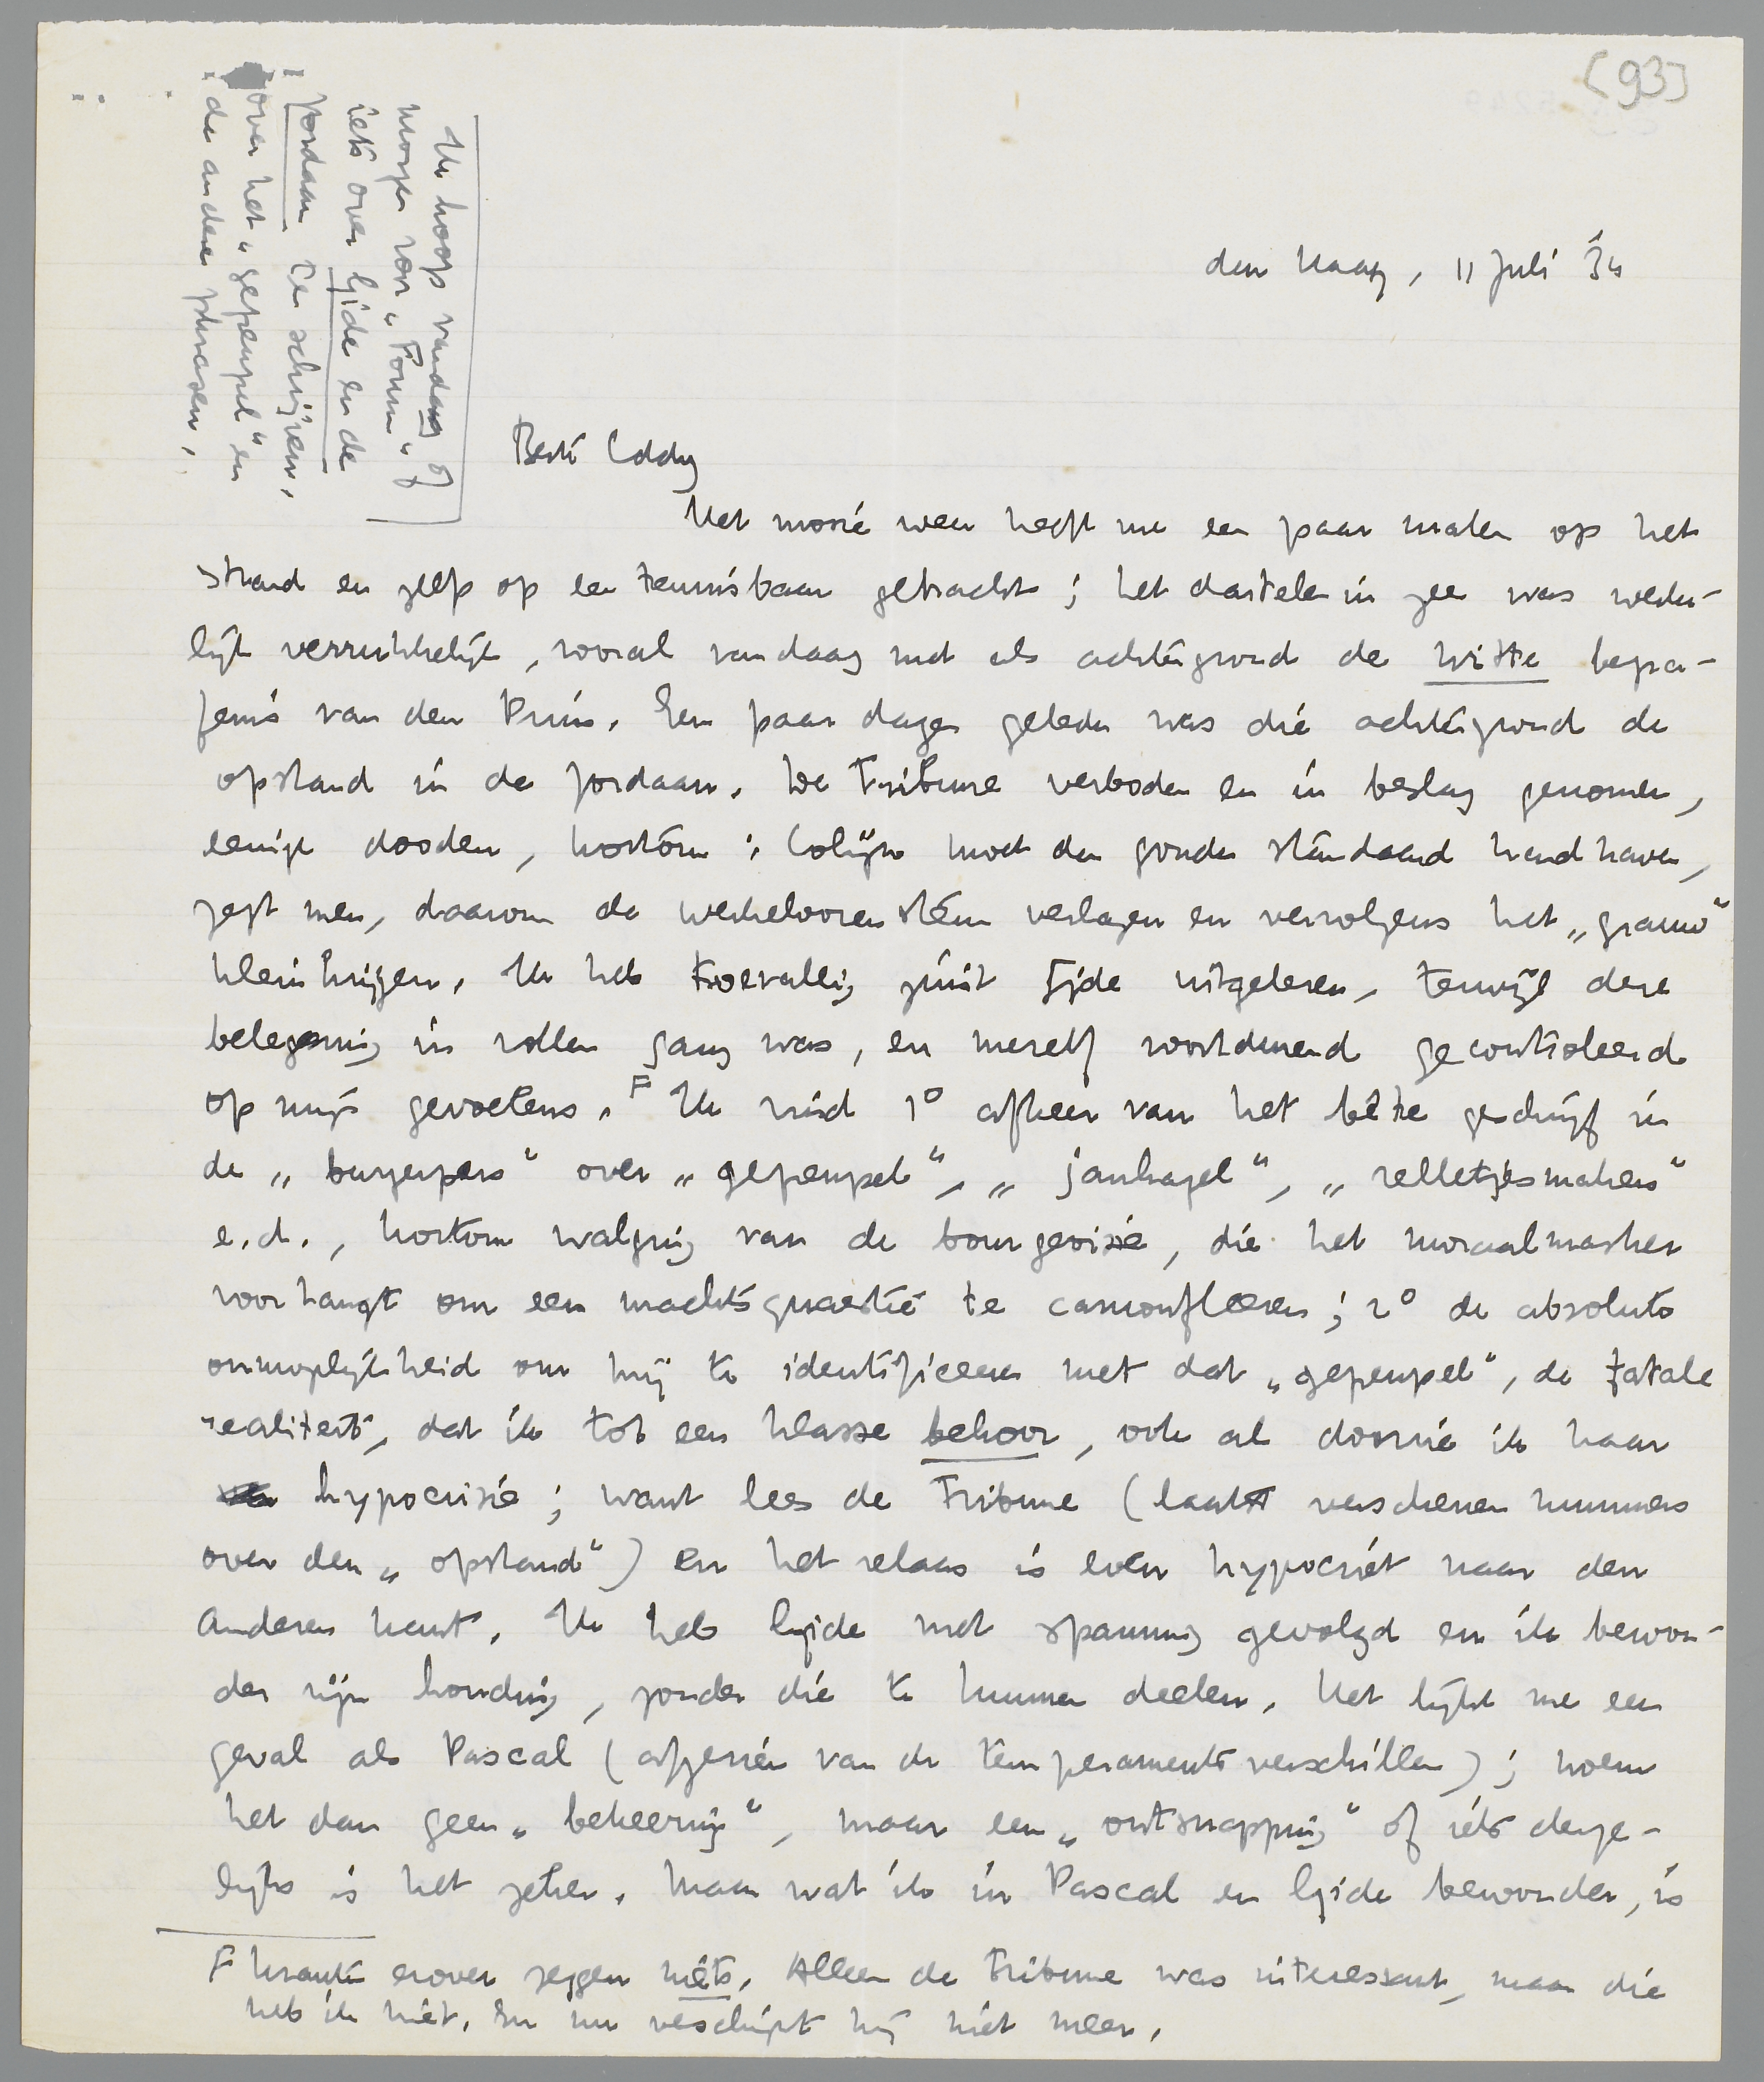 [93]
Ik hoop vandaag of
morgen voor „Forum" of
iets over Gide en de
Jordaan te schrijven,
over het „gepeupel" en
de andere phrasen,
den Haag, 11 Juli '34
Beste Eddy
Het mooie weer heeft me een paar malen op het
strand en zelfs op een tennisbaan gebracht; het dartelen in zee was werke-
lijk verrukkelijk, vooral vandaag met als achtergrond de witte begra-
fenis van den Prins. Een paar dagen geleden was die achtergrond de
opstand in de Jordaan. De Tribune verboden en in beslag genomen,
eenige dooden, kortom: Colijn moet den gouden standaard handhaven,
zegt men, daarom de werkeloozensteun verlagen en vervolgens het „grauw"
klein krijgen. Ik heb toevallig juist Gide uitgelezen, terwijl deze
belegering in vollen gang was, en mezelf voortdurend gecontroleerd
op mijn gevoelens. F Ik vind 1° afkeer van het bête geschrijf in
de „burgerpers" over „gepeupel", „janhagel", „relletjesmakers"
e.d., kortom walging van de bourgeoisie, die het moraalmasker
voorhangt om een machtsquaestie te camoufleeren; 2° de absolute
onmogelijkheid om mij te identificeeren met dat „gepeupel", de fatale
realiteit, dat ik tot een klasse behoor, ook al doorzie ik haar
hypocrisie; want lees de Tribune (laatst verschenen nummers
over den „opstand") en het relaas is even hypocriet naar den
anderen kant. Ik heb Gide met spanning gevolgd en ik bewon-
der zijn houding, zonder die te kunnen deelen. Het lijkt me een
geval als Pascal (afgezien van de temperamentsverschillen); noem
het dan geen „bekeering", maar een „ontsnapping" of iets derge-
lijks is het zeker. Maar wat ik in Pascal en Gide bewonder, is
F kranten erover zeggen niets. Alleen de Tribune was interessant, maar die
heb ik niet. En nu verschijnt hij niet meer.